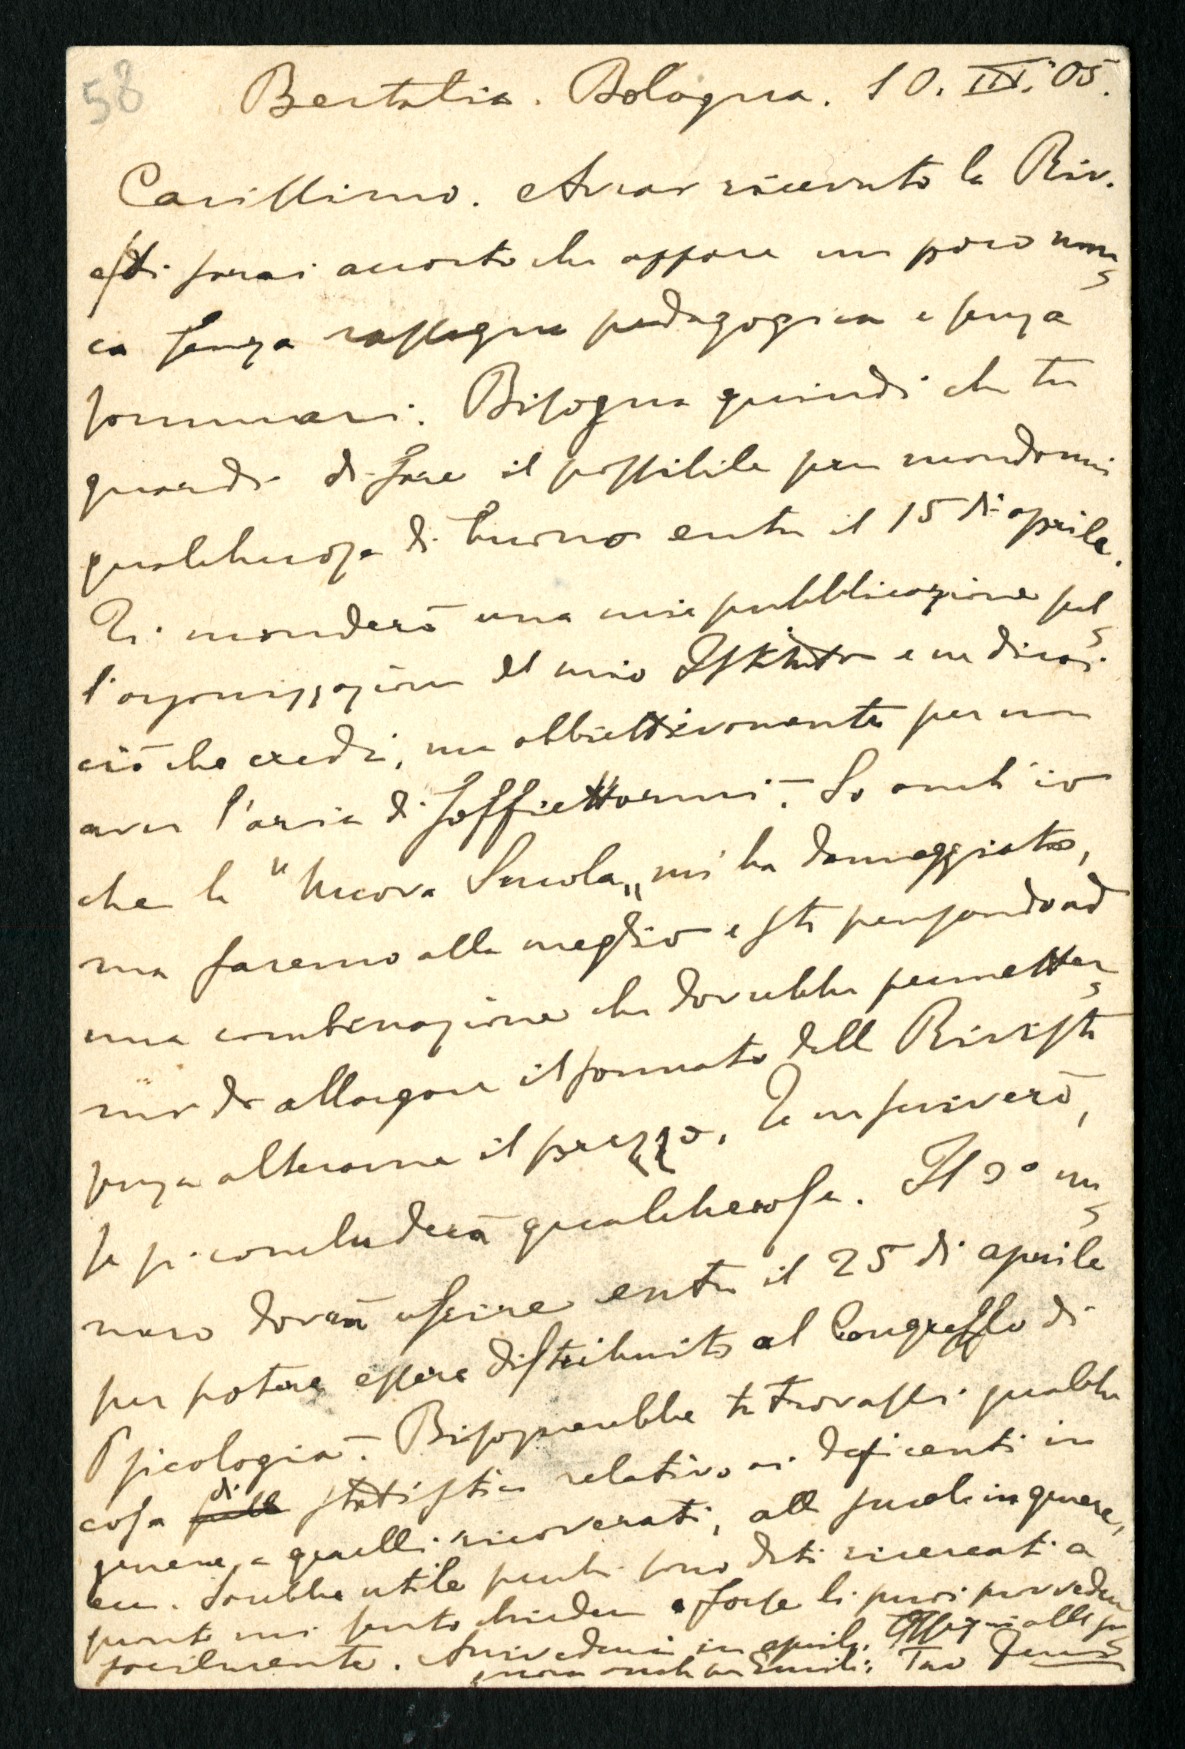 58
Bertalia. Bologna. 10. III. 05.
Carissimo. Avrai ricevuto la Riv.
e ti sarai accorto che appare un poco mon-
ca senza rassegna pedagogica e senza
sommari. Bisogna quindi che tu
guardi di fare il possibile per mandarmi
qualchecosa di buono entro il 15 di aprile.
Ti manderò una mia pubblicazione sul-
l'organizzazione del mio Istituto e ne dirai
ciò che credi, ma obbiettivamente per non
aver l'aria di soffiettarmi. So anch'io
che la "Nuova Scuola„ mi ha danneggiato,
ma faremo alla meglio e sto pensando ad
una combinazione che dovrebbe permetter-
mi di allargare il formato della Rivista
senza alterarne il prezzo. Te ne scriverò,
se si concluderà qualchecosa. Il 2° nu-
mero dovrà uscire entro il 25 di aprile
per potere essere distribuito al Congresso di
Psicologia. Bisognerebbe tu trovassi qualche
cosa di statistica relativo ai deficenti in
genere, a quelli ricoverati, alle scuole in genere,
ecc. Sarebbe utile perchè sono dati ricercati a
quanto mi sento chiedere e forse li puoi provvedere
facilmente. Arrivederci in aprile. Ossequi alla sig-
nora anche da Emilia. Tuo